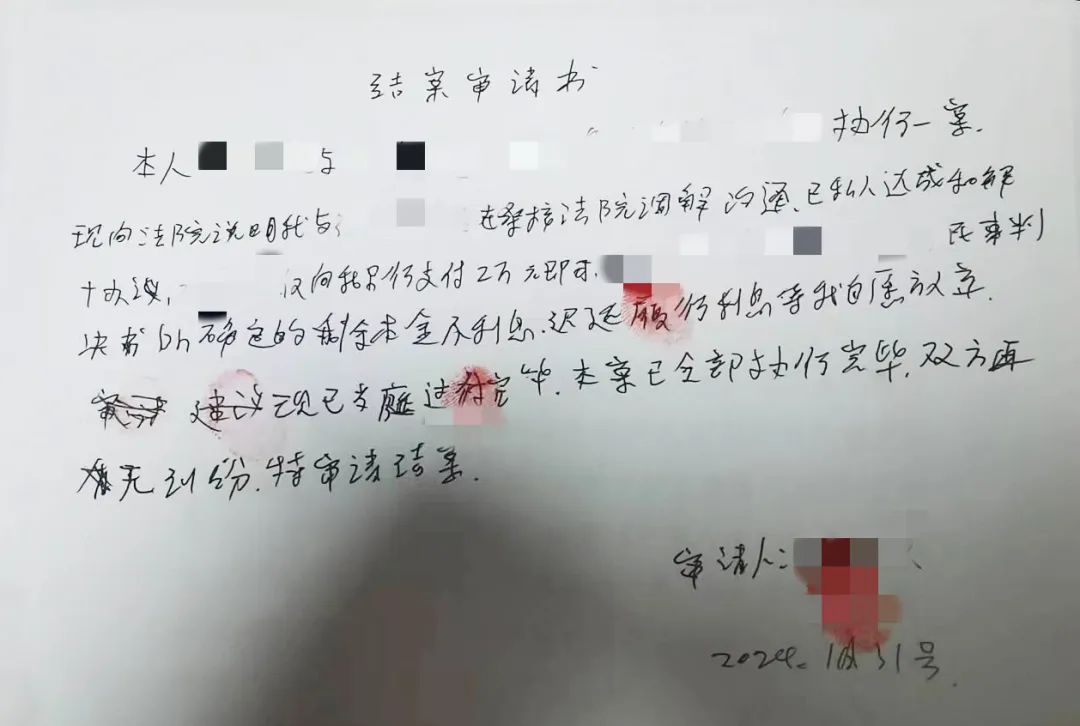 结案申请书
本人 与 执行一案.
现向法院说明我与 在 法院调解沟通、已私人达成和解
协议, 仅向我另行支付2万元即可. 民事判
决书 确定的剩余本金及利息、迟延履行利息等我自愿放弃.
现已支 过付完毕. 本案已全部执行完毕, 双方再
无纠纷. 特申请结案.
申请人:
2024. 31号.